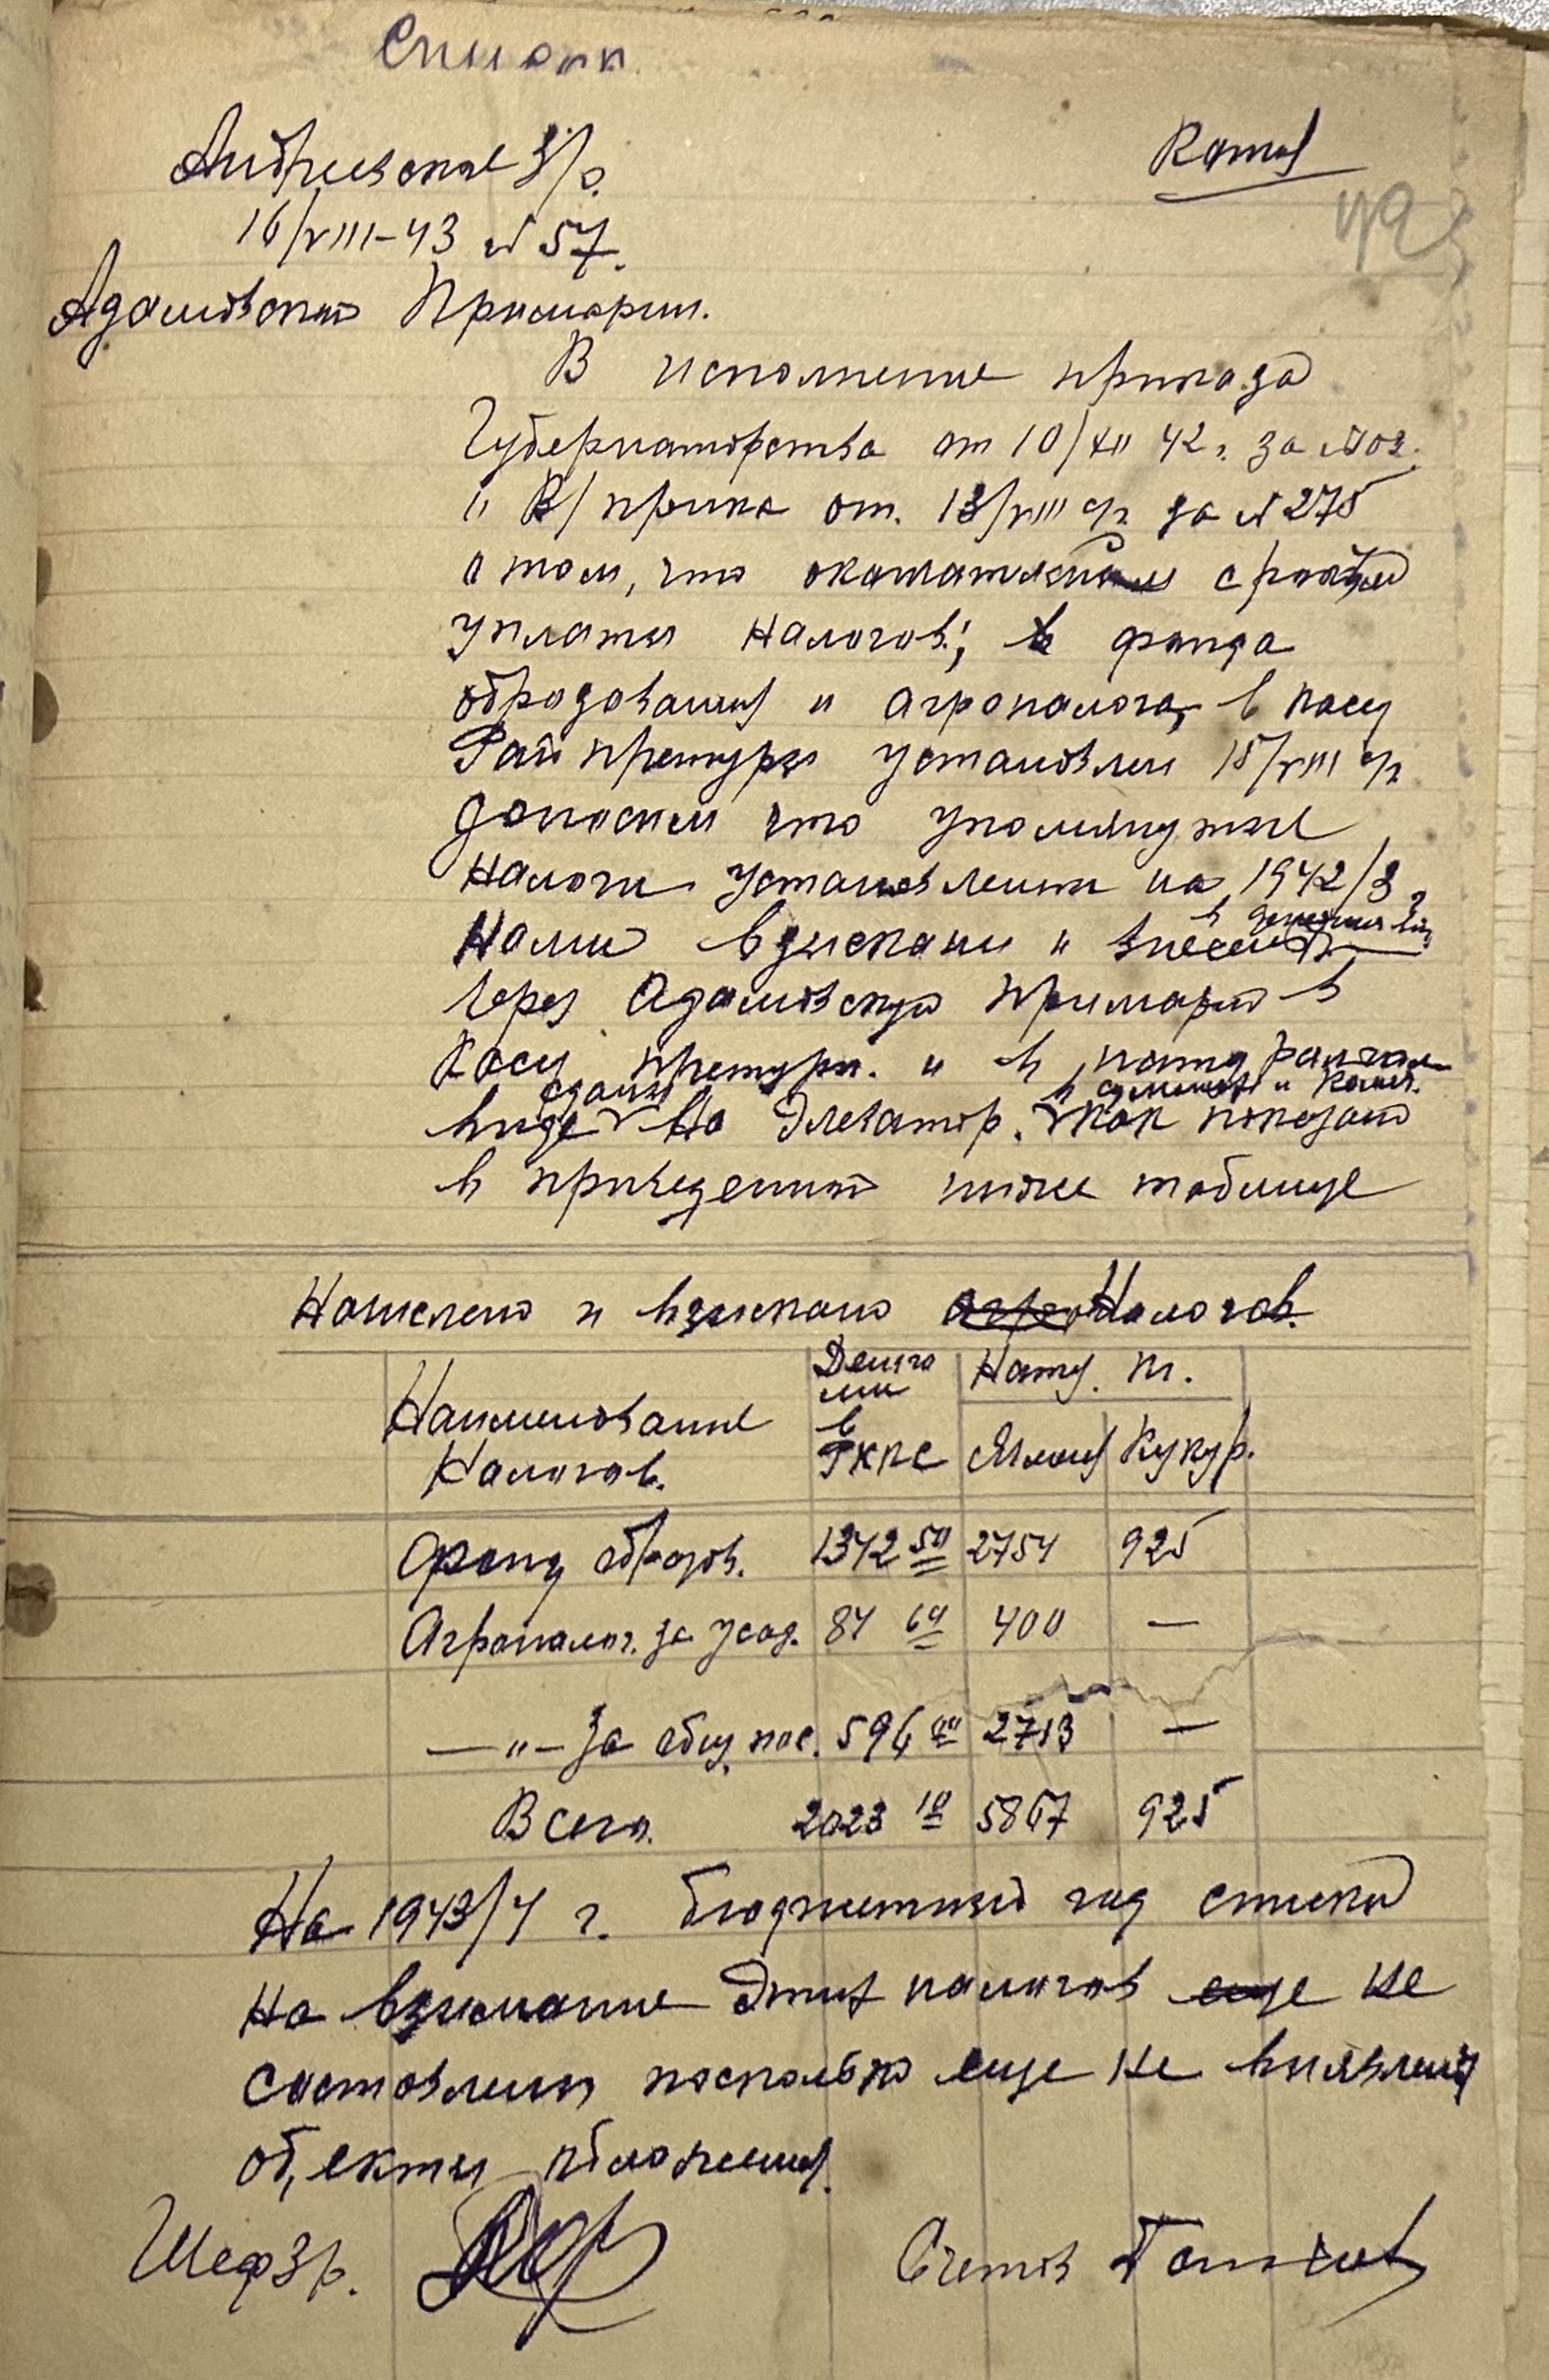 Списки
Андреевское з/о. Копия
16/VIII-43 № 57.
Адамовской Примарии.
В исполнение приказа
Губернаторства от 10/XII 42 г. за №
и В/ приказ от. 13/VIII с/г за № 275
о том, что окончательным сроком
уплаты налогов; в фонда
образования и агроналога, в касу
Рай претуры установлен 15/VIII с/г
доносим что упомянутые
налоги установленны на 1942/3 г
Нами взысканы и внесены в денежн. виде
через Адамовскую примарию в
Касу претуры. и в натуральном
виде сданы на Элеватор. как показано
в приведенной ниже таблице
Начислено и взыскано агро Налогов.
Наименование Налогов. Деньгами в РККС Нату. кг.
Ячмен Кукур.
Фонд образов. 1342 50 2754 925
Агроналог. за усад. 84 60 400 —
—"— за общ. пос. 596 00 2713 —
Всего. 2023 10 5867 925
На 1943/4 г. бюджетный год списки
на взимание этих налогов еще не
составлены поскольку еще не выявлены
об,екты обложения.
Шеф Зр. Счетов